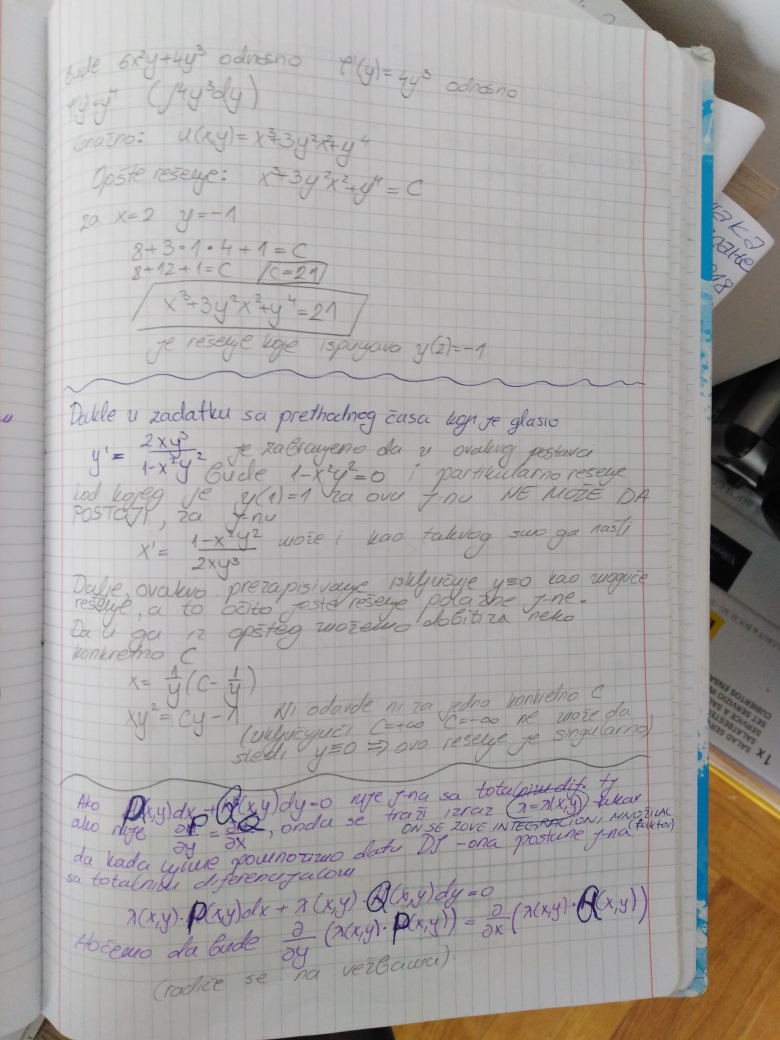 bude 6x²y+4y³ odnosno φ'(y)=4y³ odnosno
φy=y⁴ (∫4y³dy)
konačno: u(x,y)=x³+3y²x²+y⁴
Opšte rešenje: x³+3y²x²+y⁴=C
za x=2 y=-1
8+3·1·4+1=C
8+12+1=C C=21
x³+3y²x²+y⁴=21
je rešenje koje ispunjava y(2)=-1
Dakle u zadatku sa prethodnog časa koji je glasio
y'= 2xy³/1-x²y² je zabranjeno da u ovakvoj postavci
bude 1-x²y²=0 i partikularno rešenje
kod kojeg je y(1)=1 za ovu j-nu NE MOŽE DA
POSTOJI, za j-nu
x'= 1-x²y²/2xy³ može i kao takvog smo ga našli
Dalje, ovakvo prezapisivanje isključuje y≡0 kao moguće
rešenje, a to očito jeste rešenje polazne j-ne.
Da li ga iz opšteg možemo dobiti za neko
konkretno C
x= 1/y (C- 1/y)
xy²=Cy-1 Ni odavde ni za jedno konkretno C
(uključujući C=+∞ C=-∞ ne može da
sledi y≡0 => ovo rešenje je singularno)
Ako P(x,y)dx+Q(x,y)dy=0 nije j-na sa totalnim dif. tj
ako nije ∂P/∂y = ∂Q/∂x, onda se traži izraz λ=λ(x,y) takav
ON SE ZOVE INTEGRACIONI MNOŽILAC (faktor)
da kada njime pomnožimo datu DJ -ona postane j-na
sa totalnim diferencijalom
λ(x,y)·P(x,y)dx+λ(x,y)·Q(x,y)dy=0
Hoćemo da bude ∂/∂y (λ(x,y)·P(x,y)) = ∂/∂x (λ(x,y)·Q(x,y))
(radiće se na vežbama)
1x
SALAD SE